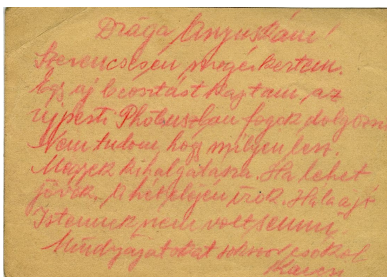 Drága Anyuskám!
Szerencsésen megérkeztem.
Egy új beosztást kaptam, az
újpesti Phöbusban fogok dolgozni
Nem tudom, hogy milyen lesz.
Megyek kihalgatásra. Ha lehet
jövök, ha nem írok. Hála a jó
Istennek nem volt semmi
Mindnyájatokat sokszor csókol